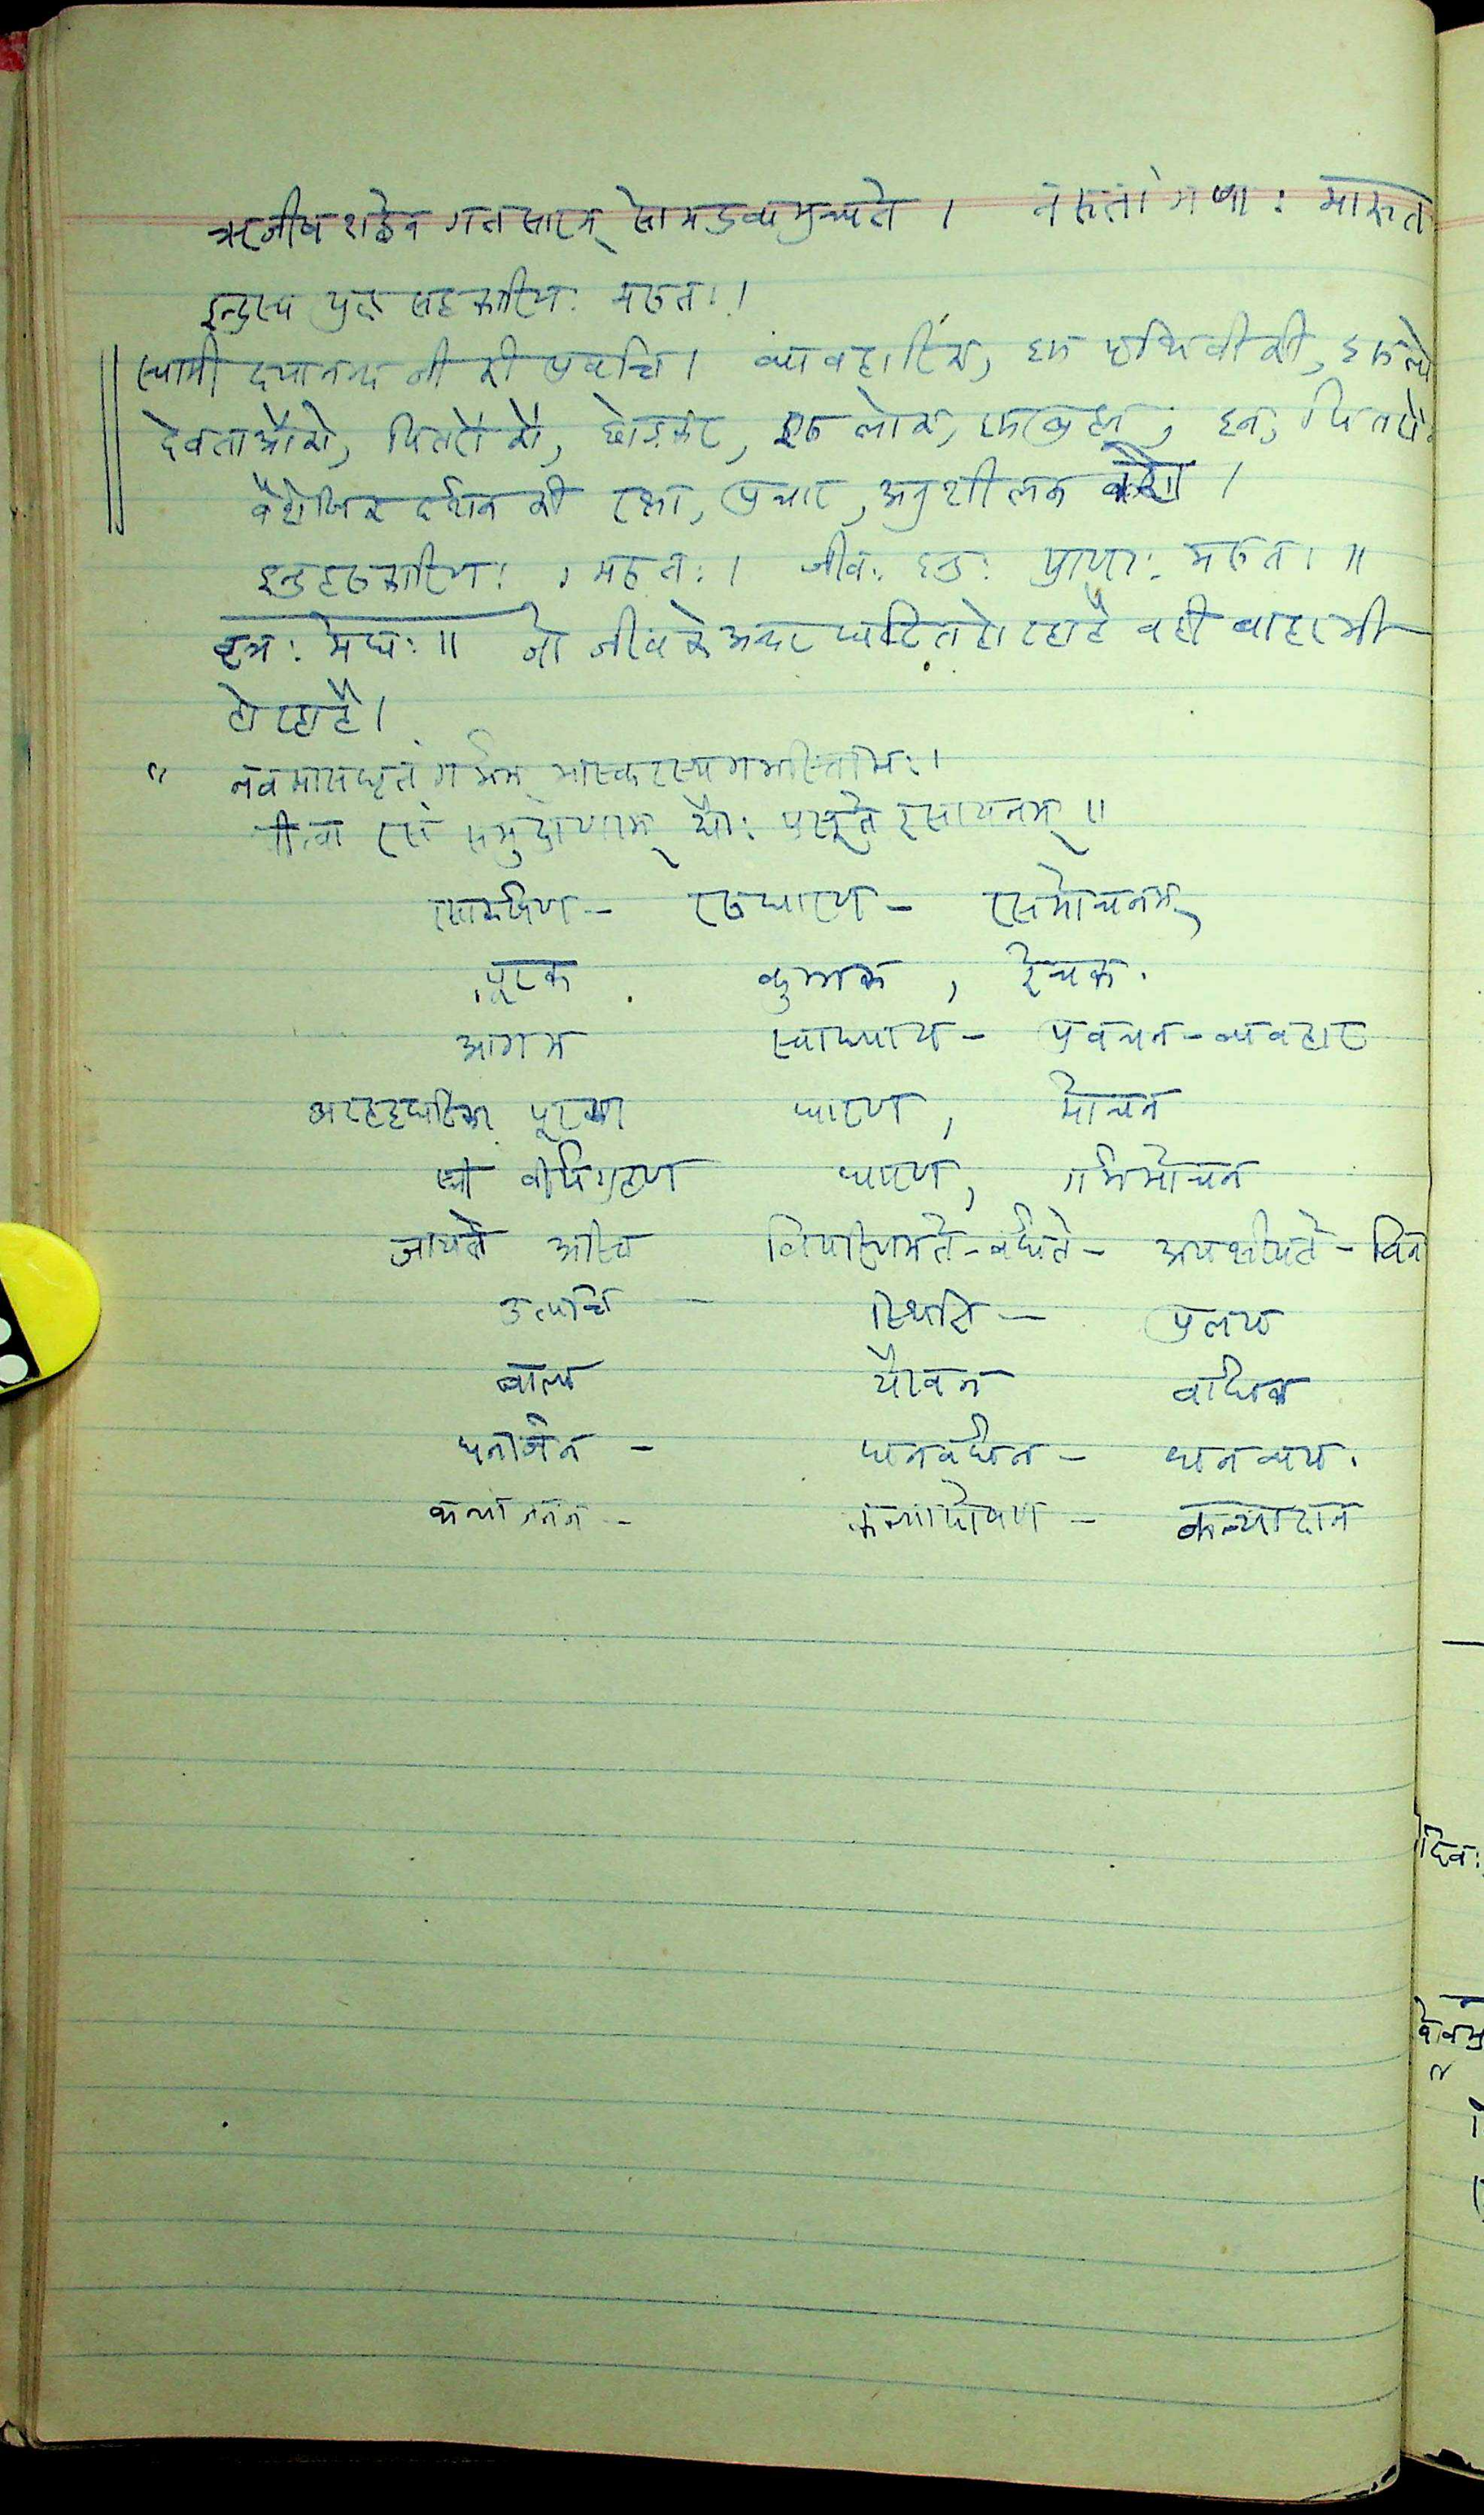 ऋजीष शब्देन गतसारम् सोमद्रव्यमुच्यते । मरुतां गणाः मारुत
इन्द्रस्य युद्ध सहकारिणः मरुतः ।
स्वामी दयानन्द जी की प्रवृत्ति । व्यावहारिक, इस पृथिवी की,
देवताओंको, पितरों को, छोडकर, इह लोक,
वैशेषिक दर्शन की रक्षा, प्रचार, अनुशीलक
इन्द्रसहकारिणः , मरुतः । जीवः इन्द्रः प्राणाः मरुतः ॥
वृत्रः मेघः ॥ जो जीव के अन्दर घटित हो रहा है वही बाहर भी
हो रहा है ।
" नवमासधृतं गर्भम् भास्करस्य गभस्तिभिः ।
पीत्वा रसं समुद्राणाम् द्यौः प्रसूते रसायनम् ॥
रसाकर्षण - रसधारण - रसमोचनम्,
पूरक कुम्भक , रेचक .
आगम स्वाध्याय - प्रवचन - व्यवहार
अरहट्टघटिका पूरण धारण , मोचन
स्त्री वीर्यग्रहण धारण , गर्भमोचन
जायते अस्ति विपरिणमते - वर्धते - अपक्षीयते - विन
उत्पत्ति - स्थिति - प्रलय
बाल्य यौवन वार्धक्य
धनार्जन - धनवर्धन - धनव्यय .
कन्याजनन - कन्यापोषण - कन्यादान